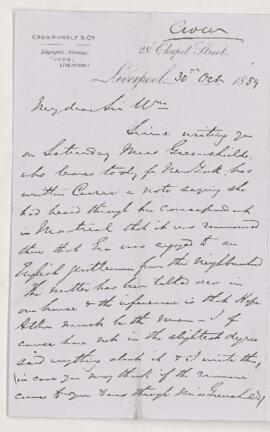 Crow
CROW RUDOLF & Co.
28, Chapel Street,
TELEGRAPHIC ADDRESS,
LIVERPOOL.
Liverpool, 30th Oct 1889
My dear Sir Wm
Since writing you
on Saturday Miss Greenshields,
who leaves today for New York, has
written Carrie a note saying she
had heard through her correspondents
in Montreal that it was rumoured
there that Eva was engaged to an
English gentleman from this neighbourhood
The matter has been talked over in
our house & the inference is that Hope
must be the man — I of
course have not in the slightest degree
said anything about it & I write this,
in case you may think if the rumour
comes to you it was through Miss Greenshields,